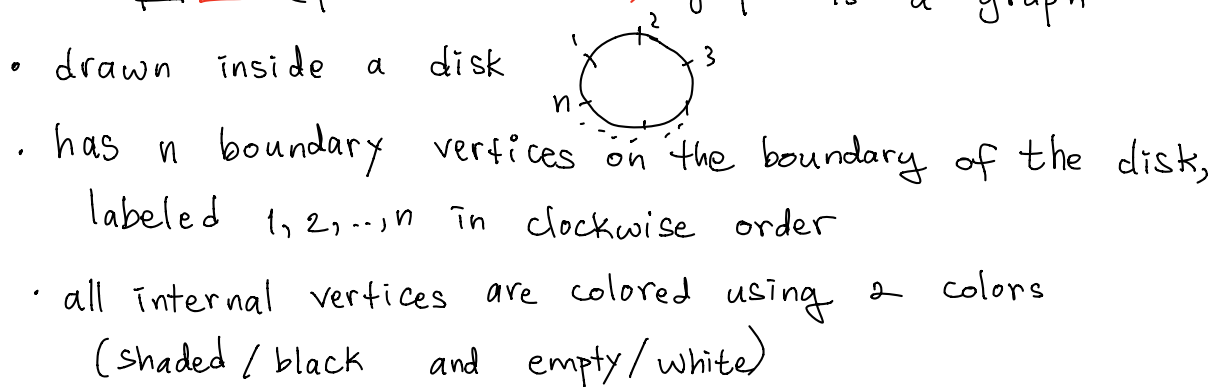 is a graph
• drawn inside a disk
1 2 3 n
• has n boundary vertices on the boundary of the disk,
labeled 1, 2, .., n in clockwise order
• all internal vertices are colored using 2 colors
(shaded / black and empty / white)